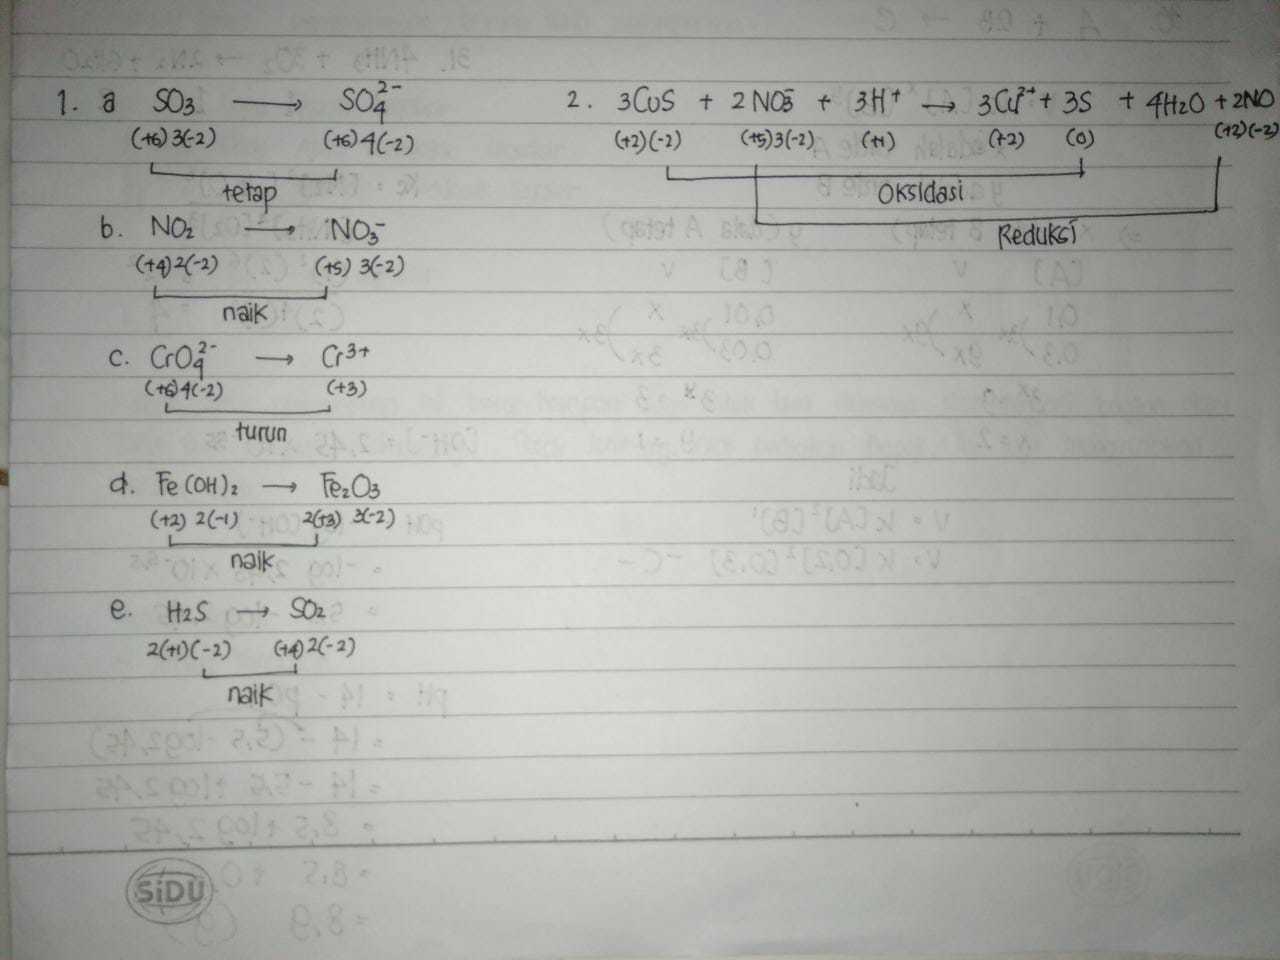 1. a SO3 → SO4²⁻
(+6)3(-2) (+6)4(-2)
tetap
b. NO2 → NO3⁻
(+4)2(-2) (+5) 3(-2)
naik
c. CrO4²⁻ → Cr³⁺
(+6)4(-2) (+3)
turun
d. Fe(OH)2 → Fe2O3
(+2) 2(-1) 2(+3) 3(-2)
naik
e. H2S → SO2
2(+1)(-2) (+4)2(-2)
naik
2. 3CuS + 2NO3⁻ + 3H⁺ → 3Cu²⁺ + 3S + 4H2O + 2NO
(+2)(-2) (+5)3(-2) (+1) (+2) (0) (+2)(-2)
Oksidasi
Reduksi
SiDU